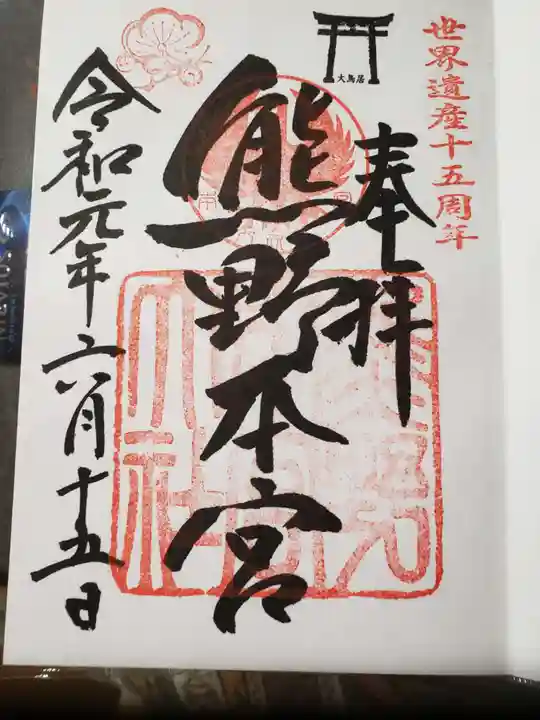 世界遺産十五周年
大鳥居
奉拝
熊野本宮
令和元年六月十五日